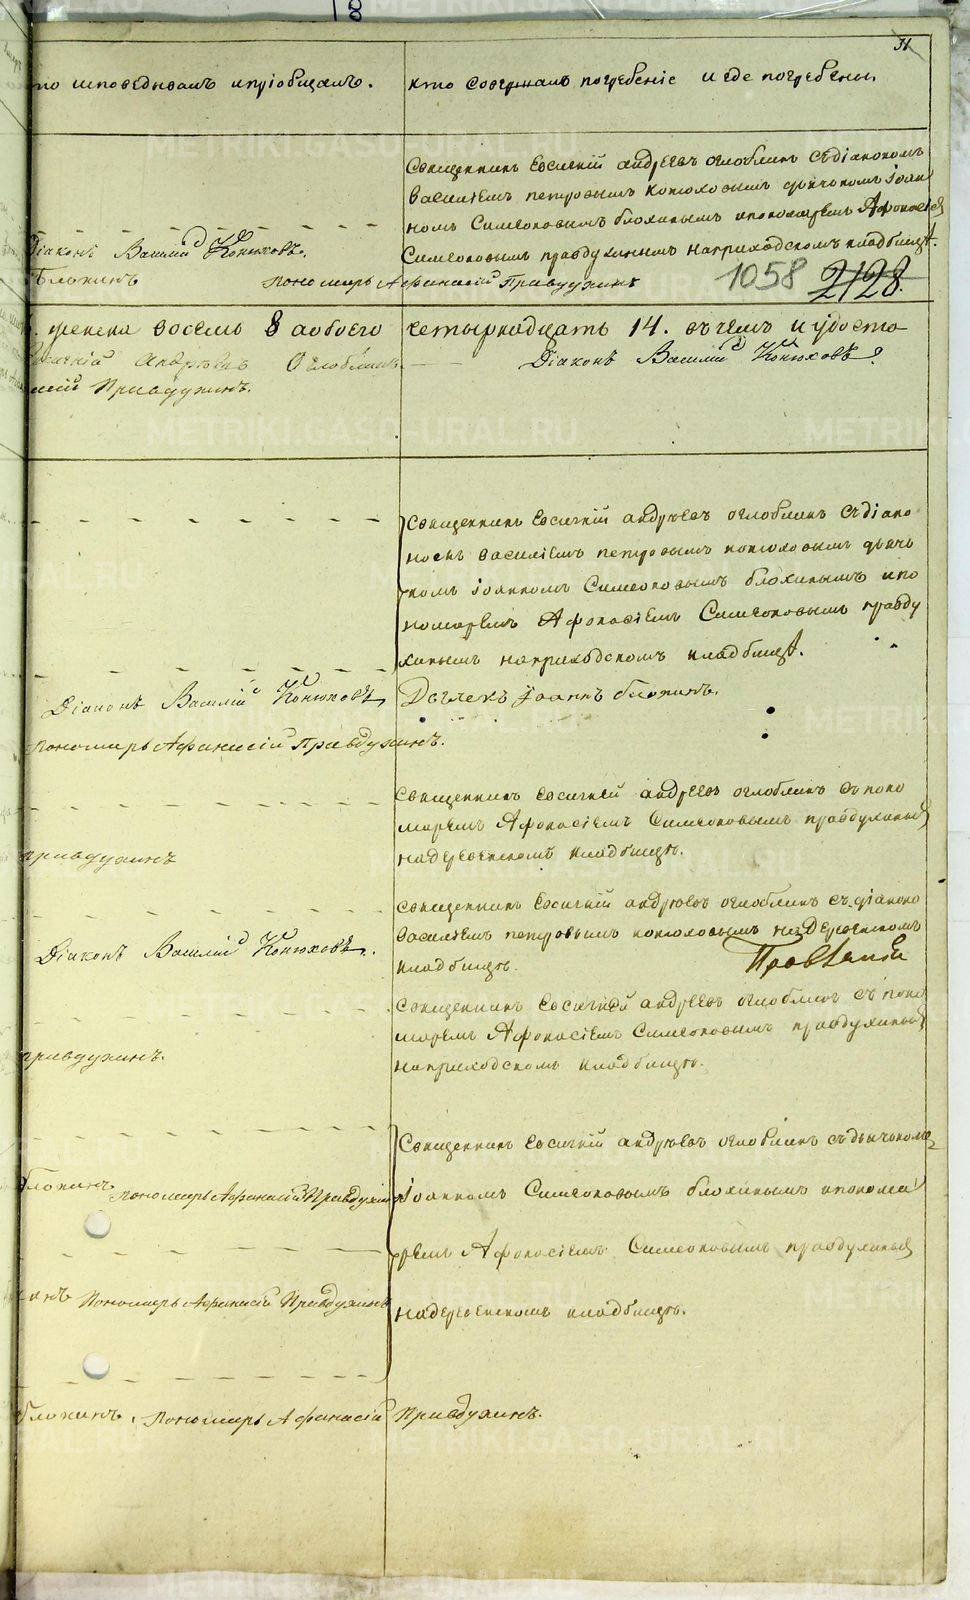 31
то исповедывалъ ипріобщалъ.
кто совершалъ погребеніе и где погребены.
Священникъ Евсигній андреевъ оглоблинъ съдіакономъ
василіемъ петровымъ конюховымъ дьячкомъ іоан
номъ Симеоновымъ блохинымъ ипономаремъ Афонасіем
Симеоновымъ правдухинымъ наприходскомъ кладбищѣ.
Діаконъ Василій Конюховъ.
Блохинъ пономарь Афанасій Правдухинъ
1058 2128
женска восемь 8 аобоего четырнадцать 14. въчемъ иудосто
Андреевъ Оглоблинъ Діаконъ Василій Конюховъ.
Правдухинъ.
Священникъ Евсигній андреевъ оглоблинъ съдіако
номъ василіемъ петровымъ конюховымъ дьяч
комъ іоанномъ Симеоновымъ блохинымъ ипо
номаремъ Афонасіемъ Симеоновымъ правду
хинымъ наприходскомъ кладбищѣ.
Діаконъ Василій Конюховъ Дьячекъ Іоаннъ блохинъ.
пономарь Афанасій Правдухинъ.
Священникъ Евсигній андреевъ оглоблинъ съпоно
маремъ Афонасіемъ Симеоновымъ правдухиным
надеревенскомъ кладбищѣ.
правдухинъ
Священникъ Евсигній андреевъ оглоблинъ съдіаконо
василіемъ петровымъ конюховымъ надеревенскомъ
кладбищѣ.
Діаконъ Василій Конюховъ.
Священникъ Евсигній андреевъ оглоблинъ съпоно
маремъ Афонасіемъ Симеоновымъ правдухиным
наприходскомъ кладбищѣ.
правдухинъ.
Священникъ Евсигній андреевъ оглоблинъ съдьячкомъ
блохинъ пономарь Афанасій Правдухинъ
іоанномъ Симеоновымъ блохинымъ ипонома
ремъ Афонасіемъ Симеоновымъ правдухиным
Пономарь Афанасій Правдухинъ
надеревенскомъ кладбищѣ.
блохинъ. пономарь Афанасій Правдухинъ.
METRIKI.GASO-URAL.RU